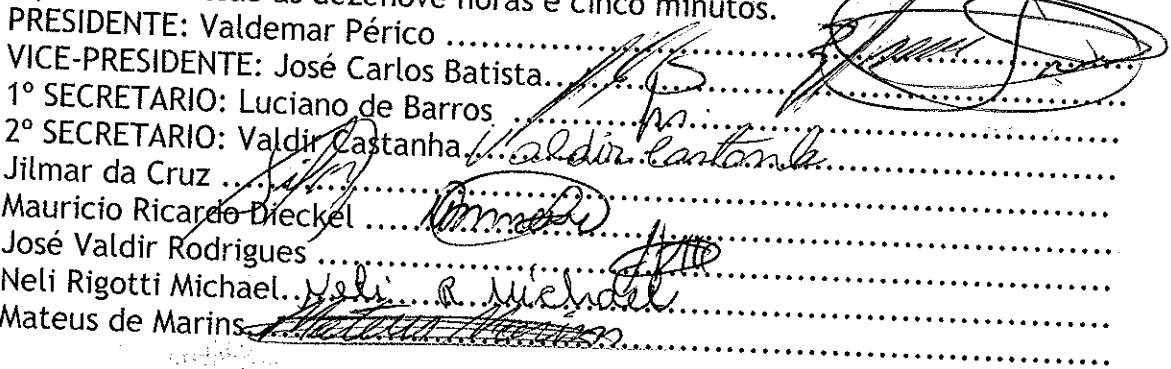 às dezenove horas e cinco minutos.
PRESIDENTE: Valdemar Périco ........................
VICE-PRESIDENTE: José Carlos Batista........................
1º SECRETARIO: Luciano de Barros ........................
2º SECRETARIO: Valdir Castanha........ Valdir Castanha ........................
Jilmar da Cruz ........................
Mauricio Ricardo Dieckel ........................
José Valdir Rodrigues ........................
Neli Rigotti Michael.. Neli R Michael ........................
Mateus de Marins Mateus Marins ........................